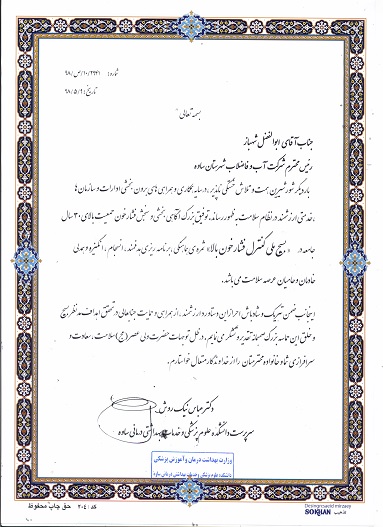 شماره: ۹۸/ص/۱۰/۲۹۳۱
تاریخ: ۹۸/۵/۹
بسمه تعالی
جناب آقای ابوالفضل شهباز
رئیس محترم شرکت آب و فاضلاب شهرستان ساوه
بار دیگر شور شیرین همت و تلاش خستگی ناپذیر، در سایه همکاری و همراهی های برون بخشی ادارات و سازمان ها
، خدمتی ارزشمند در نظام سلامت به ظهور رساند. توفیق بزرگ آگاهی بخشی و سنجش فشار خون جمعیت بالای ۳۰ سال
جامعه در « بسیج ملی کنترل فشار خون بالا» ثمره ی هماهنگی، برنامه ریزی هدفمند، انسجام، انگیزه و همدلی
خادمان و حامیان عرصه سلامت می باشد.
اینجانب ضمن تبریک و شادباش احراز این دستاورد ارزشمند، از همراهی و حمایت جنابعالی در تحقق اهداف مدنظر بسیج
و خلق این حماسه بزرگ صمیمانه تقدیر و تشکر می نمایم. در ظل توجهات حضرت ولی عصر (عج) سلامت، سعادت و
سرافرازی شما و خانواده محترمتان را از خداوندگار متعال خواستارم.
دکتر عباس نیک روش
سرپرست دانشکده علوم پزشکی و خدمات بهداشتی درمانی ساوه
وزارت بهداشت درمان و آموزش پزشکی
دانشکده علوم پزشکی و خدمات بهداشتی درمانی ساوه
کد: ۲۰۴ حق چاپ محفوظ
Designgraoed mirzaey
SOKQIAN تذهیب